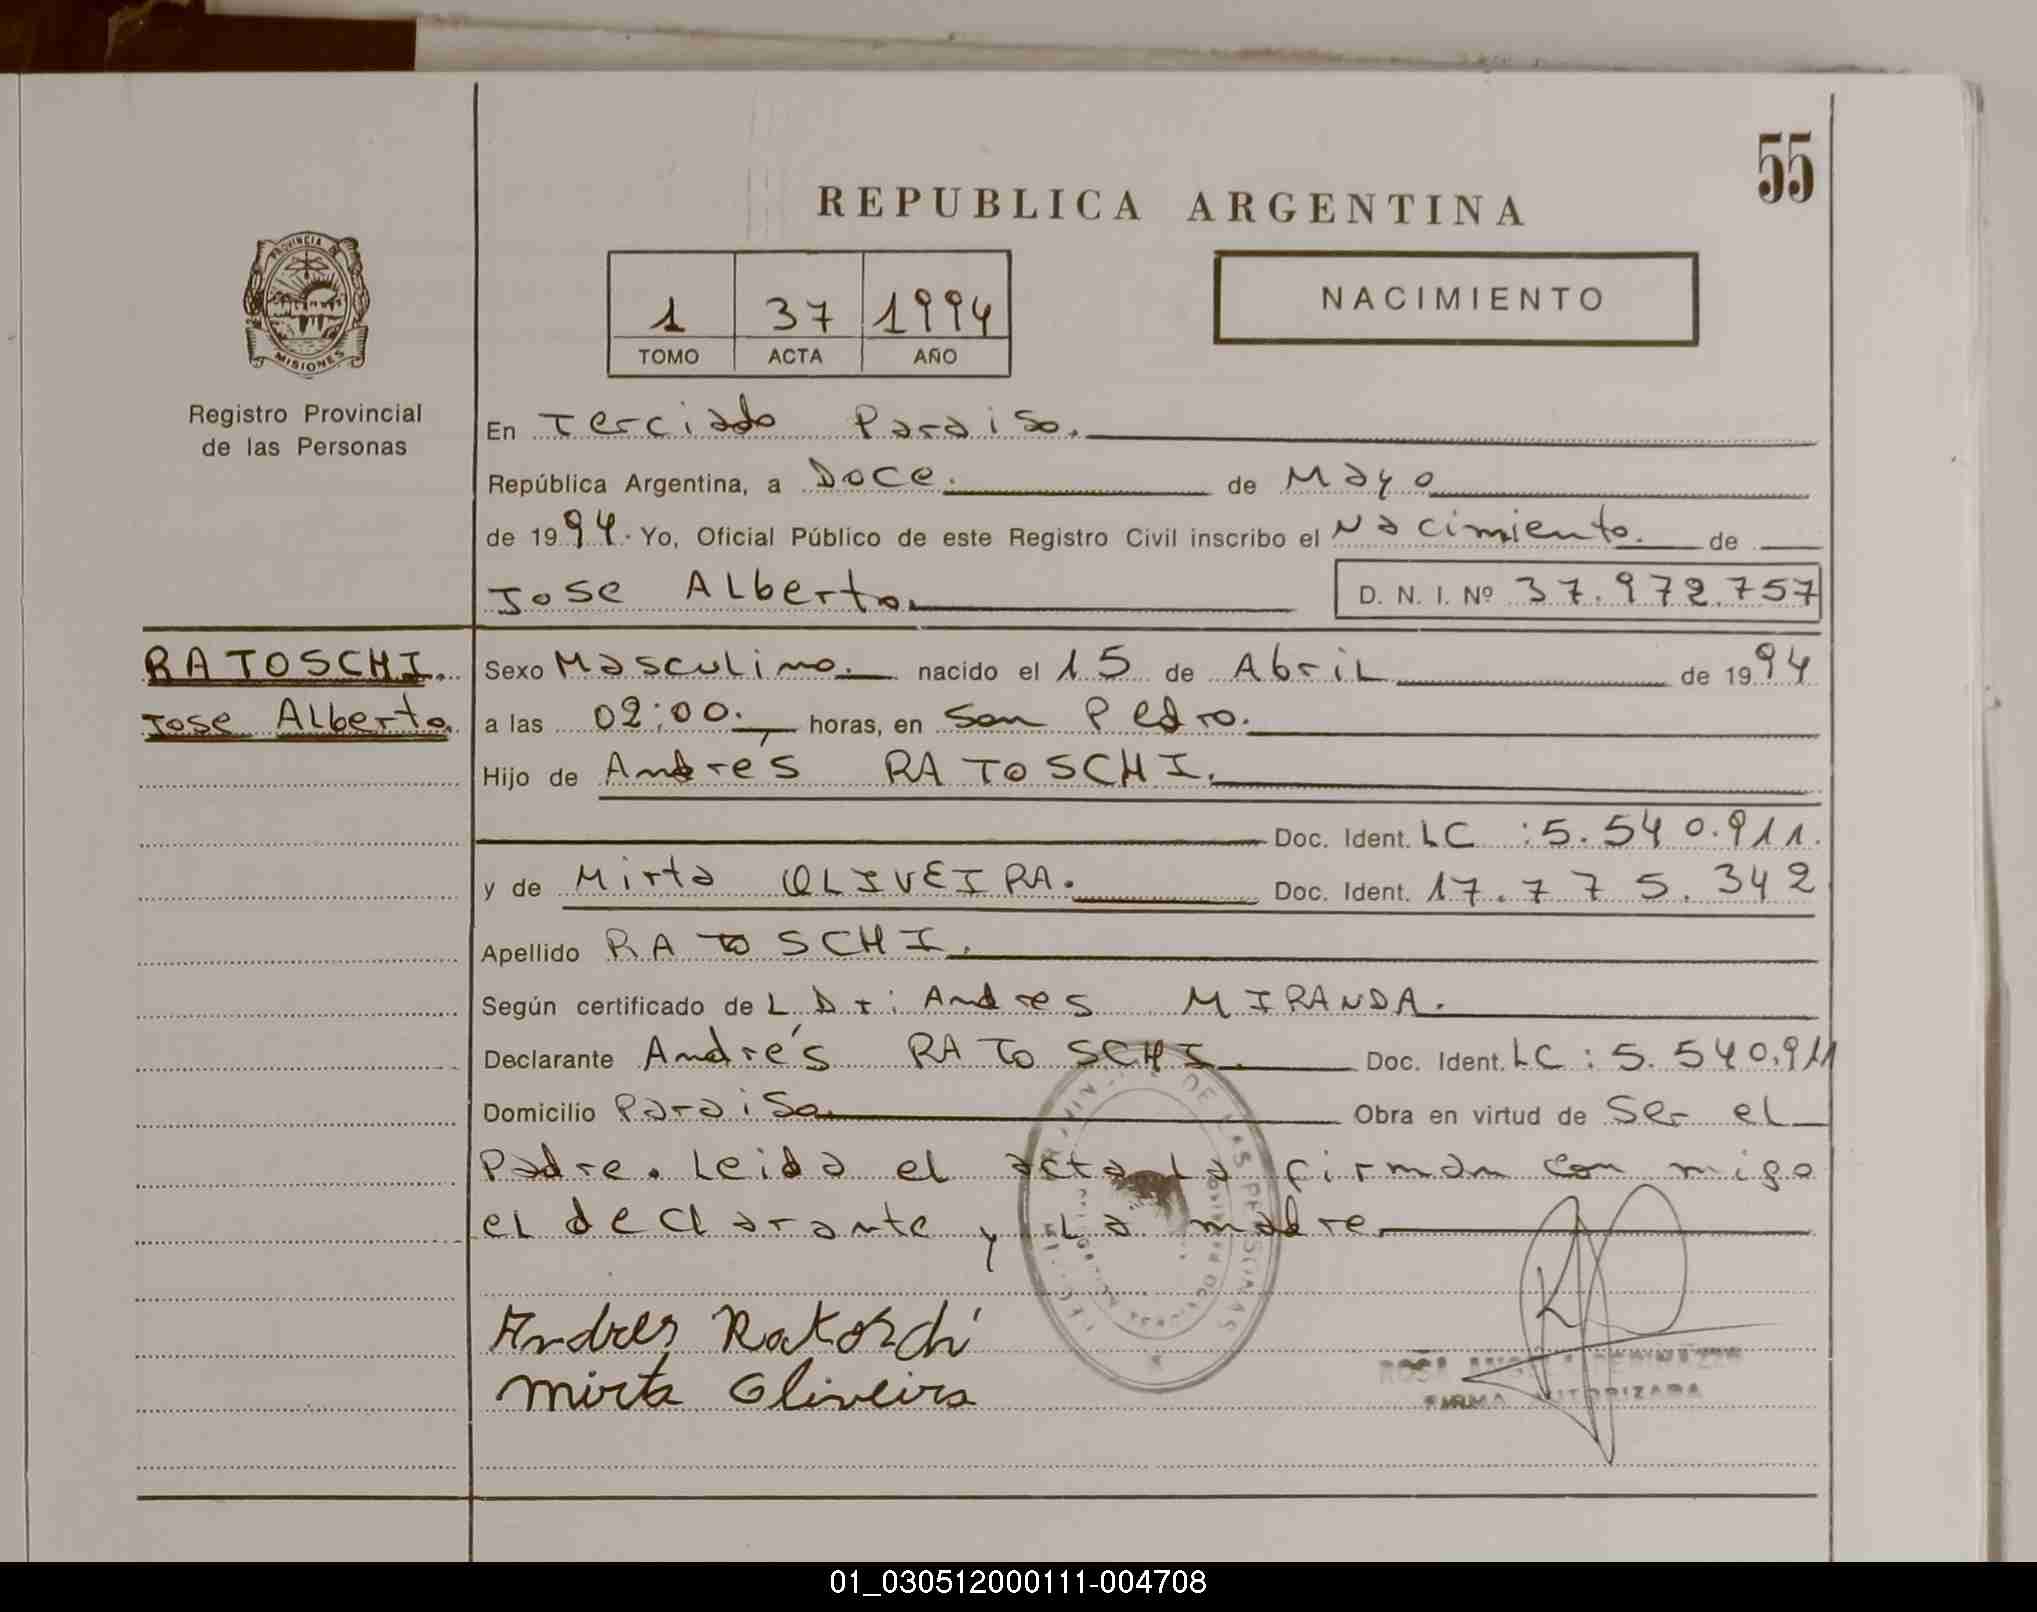 55
REPUBLICA ARGENTINA
PROVINCIA DE
MISIONES
Registro Provincial
de las Personas
1 37 1994
TOMO ACTA AÑO
NACIMIENTO
En Terciado Paraiso.
República Argentina, a Doce. de Mayo
de 1994. Yo, Oficial Público de este Registro Civil inscribo el Nacimiento. de
Jose Alberto. D. N. I. Nº 37.972.757
RATOSCHI.
Jose Alberto.
Sexo Masculino. nacido el 15 de Abril de 1994
a las 02:00. horas, en San Pedro.
Hijo de Andrés RATOSCHI.
Doc. Ident. LC : 5.540.911.
y de Mirta OLIVEIRA. Doc. Ident. 17.775.342
Apellido RATOSCHI.
Según certificado de L Dr: Andres MIRANDA.
Declarante Andrés RATOSCHI. Doc. Ident. LC : 5.540.911
Domicilio Paraiso. Obra en virtud de Ser el
Padre. Leida el acta la firman con migo
el declarante y la madre.
Andres Ratoschi
Mirta Oliveira
DE LAS PERSONAS
ROSA
FIRMA AUTORIZADA
01_030512000111-004708